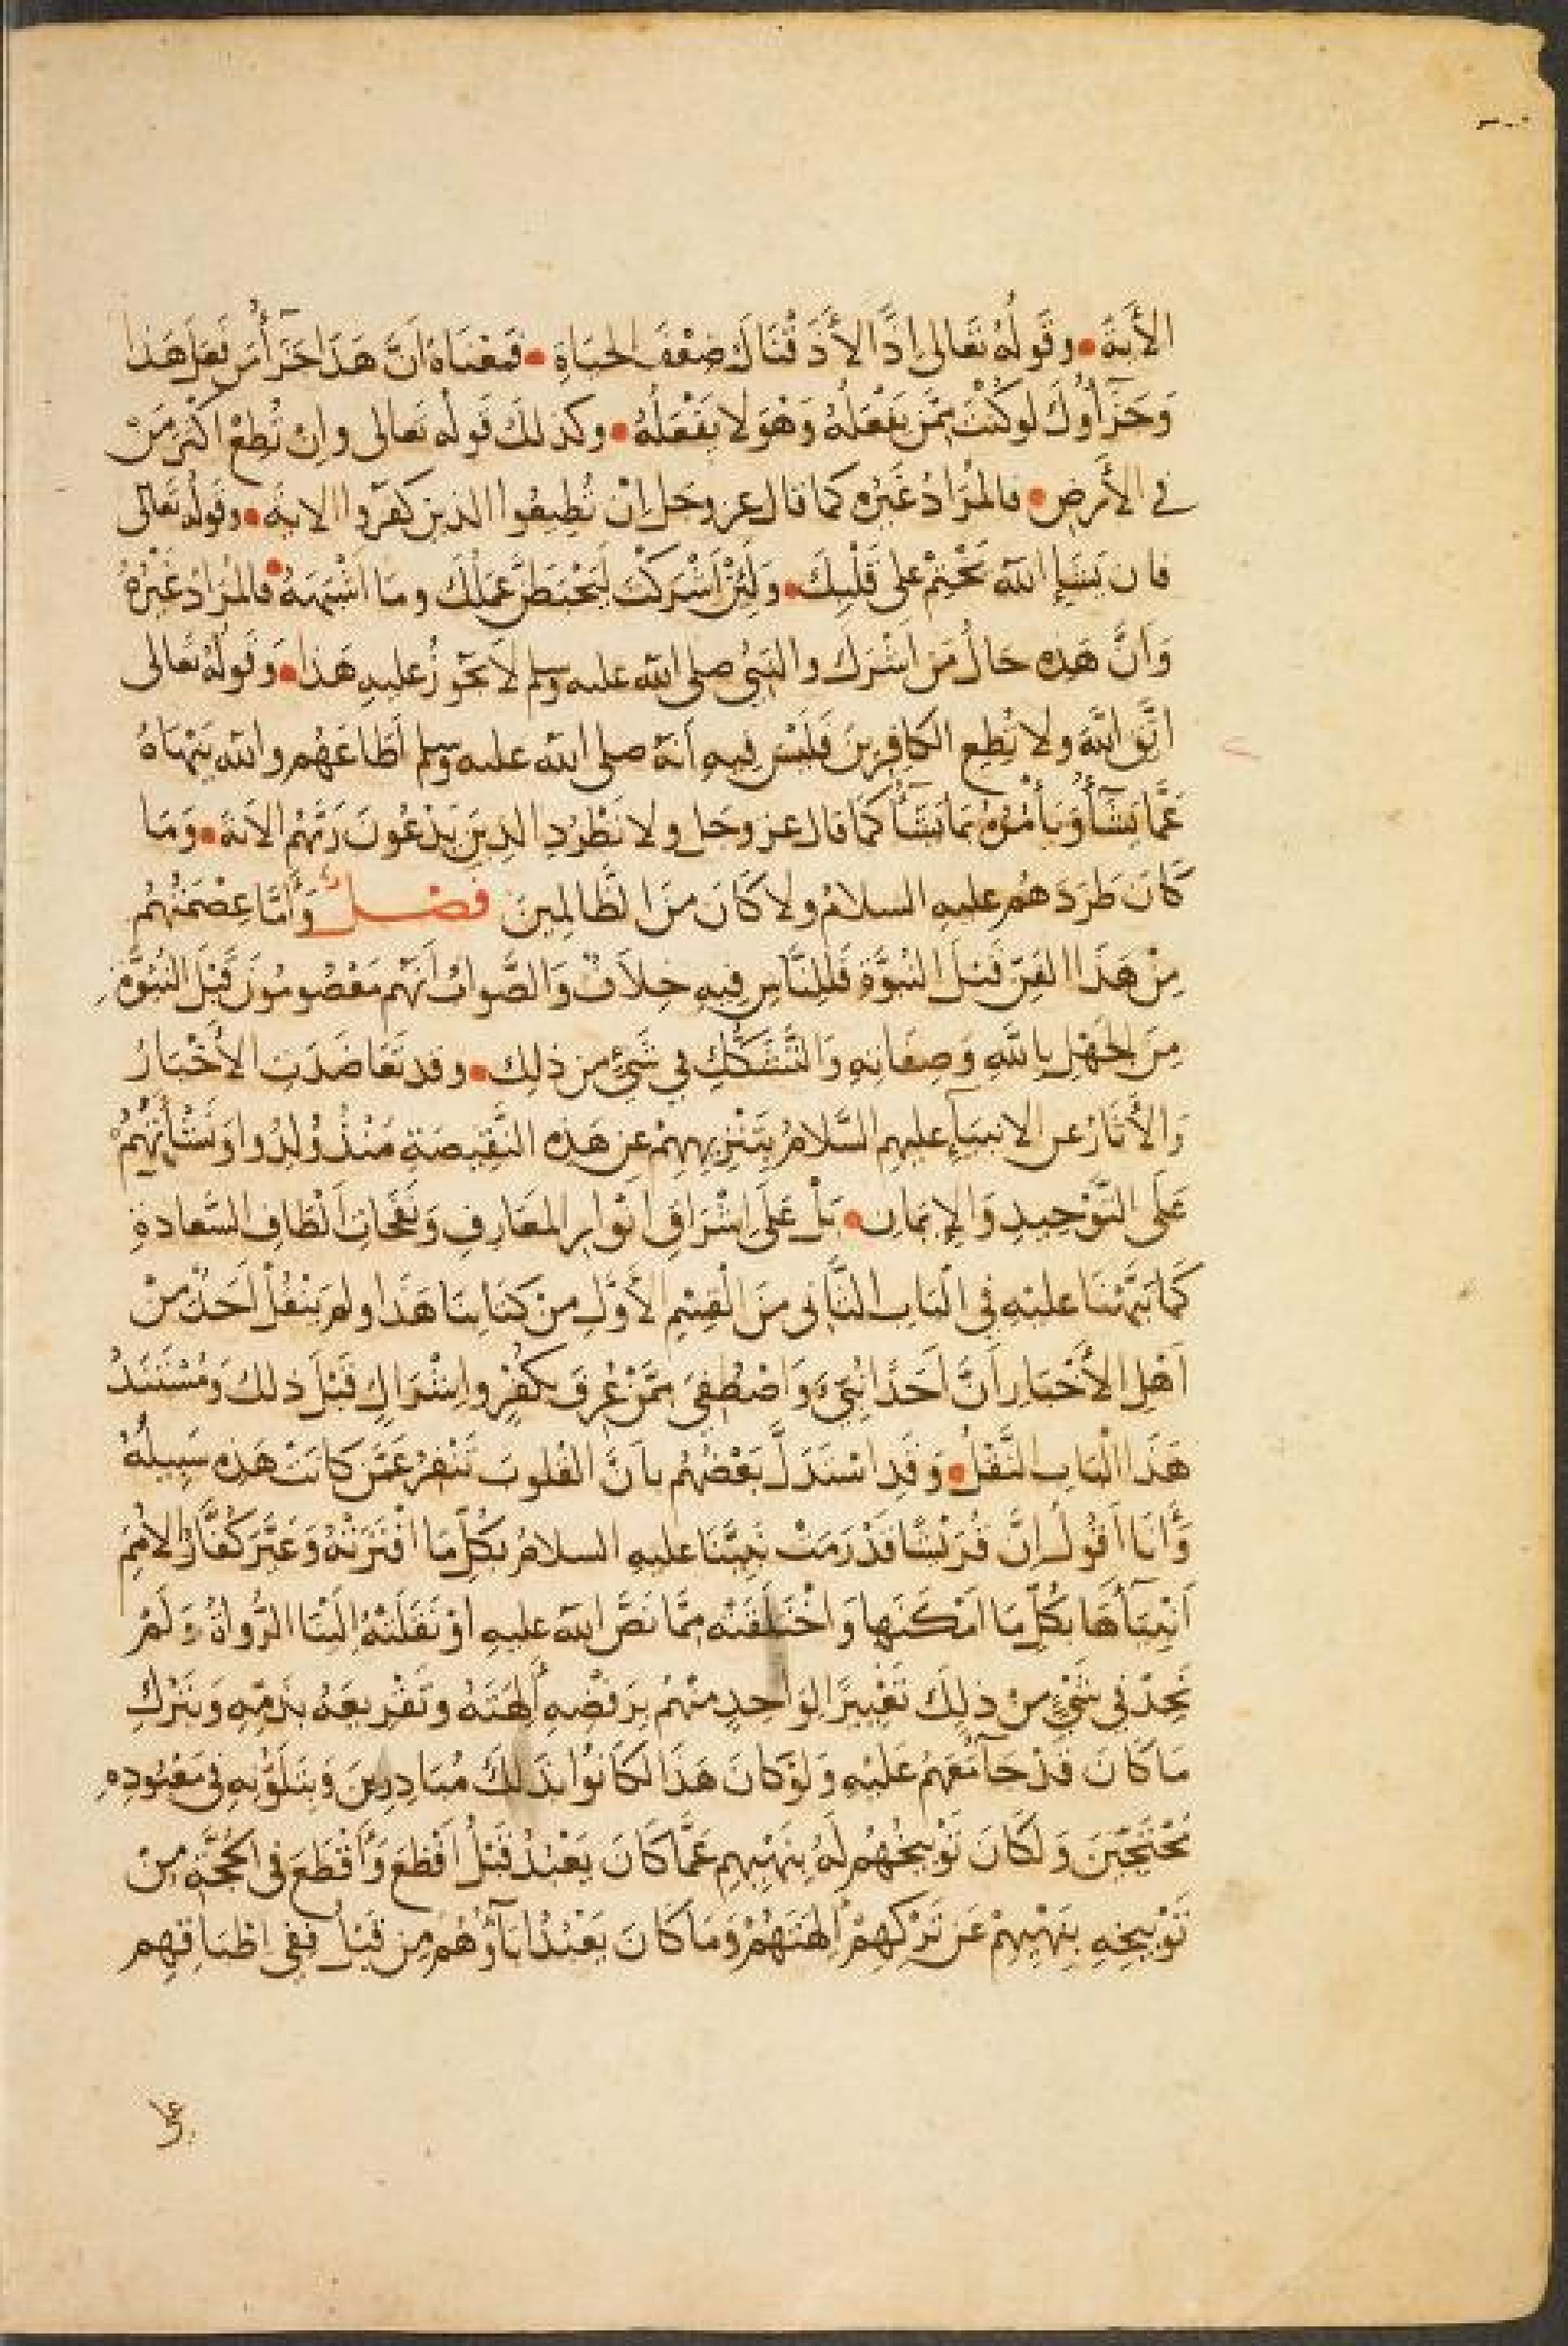 الأيَةَ • وقَولُهُ تعَالى إذًا لأذَقْنَاكَ ضِعْفَ الحَيَاةِ • فَمَعْنَاهُ اَنَّ هَذَا جَزَآءُ مَن فَعَلَ هَذا
وَجَزَآؤُكَ لَو كُنْتَ مِمَّن يَفْعَلُهُ وَهْوَ لا يَفْعَلُهُ • وكذلكَ قَولُه تَعالى وإنْ تُطِعْ اكثَرَ مَنْ
في الأرضِ • فالمُرَادُ غَيْرُه كما قال عز وجل إنْ تُطِيعُوا الذين كَفَروا الاية • وقَولُه تَعالى
فان يَشَإِ الله يَخْتِمْ على قَلْبِكَ • وَلَئِنْ اَشْرَكْتَ لَيَحْبَطَنَّ عَمَلُكَ وما اَشْبَهَهُ • فالمُرَادُ غَيْرُهُ
وَأنَّ هَذِه حَالُ مَن اشْرَك والنَبيُّ صلى الله عليه وسلم لاَ يَجُوزُ عليهِ هَذا • وَقَولُهُ تَعالى
اتَّقِ اللهَ ولا تُطِعِ الكافِرِينَ فَلَيْسَ فِيهِ اَنهُ صلى الله عليه وسلم اَطَاعَهُم والله يَنْهَاهُ
عَمَّا يَشَآءُ وَيَأمُرُهُ بمَا يَشَآءُ كَمَا قال عز وجل ولا تَطْرُدِ الذِينَ يَدْعُونَ رَبَّهُم الآيَةَ • وَمَا
كَانَ طَرَدَهُم عليهِ السلامُ ولا كَانَ مِنَ الظَّالِمِينَ فَصْلٌ وَأَمَّا عِصْمَتُهُم
مِنْ هَذَا الفَنّ قَبْلَ النُبُوَّةِ فَلِلنَّاسِ فِيهِ خِلاَفٌ وَالصَّوابُ اَنَهُم مَعْصُومُونَ قَبْلَ النُبُوَّةِ
مِنَ الجَهْلِ بِاللهِ وَصِفَاتِهِ وَالتَّشَكُّكِ في شَيْءٍ من ذلِك • وقد تَعَاضَدَتِ الأَخْبَارُ
وَالأَثَارُ عن الانبيَآءِ عليهِم السَّلامُ بِتَنْزِيهِهِمْ عن هَذِهِ النَّقِيصَةِ مُنْذُ وُلِدُوا وَنَشْأتُهُمْ
عَلَى التَّوْحِيدِ وَالإيمَانِ • بَلْ عَلَى اِشْرَاقِ اَنْوارِ المَعَارِفِ وَنَفَحَاتِ اَلْطَافِ السَّعادةِ
كَمَا نَبَّهْنَا عليْهِ فِي الْبَابِ الثَّاني مِنَ الْقِسْمِ الأَوَّلِ مِنْ كتَابنَا هَذَا ولم يَنْقُلْ اَحَدٌ مِنْ
اَهْلِ الأَخْبَارِ أنَّ اَحَدًا نُبِّيَ وَاصْطُفِيَ مِمَّنْ عُرِفَ بِكُفْرٍ وإشْرَاكٍ قَبْلَ ذلك وَمُسْتَنَدُ
هَذَا الْبَابِ النَّقْلُ • وَقَدِ اسْتَدَلَّ بَعْضُهُم بأنَّ القُلُوبَ تَنْفِرُ عَمَّن كانَتْ هَذِه سَبِيلَهُ
وَأنَا أَقُولُ إنَّ قُرَيْشًا قَدْ رَمَتْ نَبِيَّنَا عليهِ السلامُ بكُلِّ مَا افْتَرَتْهُ وَعَيَّرَ كُفَّارُ الاُمَمِ
اَنْبِيَآءَهَا بكُلِّ مَا اَمْكَنَهَا وَاخْتَلَقَتْه مِمَّا نَصَّ الله عليهِ اَوْ نَقَلَتْهُ إلَيْنَا الرُّواةُ وَلَمْ
نَجِدْ فِي شَيْءٍ مِنْ ذلِكَ تَعْيِيرًا لِوَاحِدٍ منهُم بِرَفْضِهِ اَلِهَتَهُ وتَقْرِيعَهُ بذَمِّهِ وَبتَرْكِ
مَا كَانَ قَدْ جَآمَعَهُم عَلَيْهِ وَلَوْ كَانَ هَذَا لَكَانُوا بذَلِكَ مُبَادِرِينَ وَبِتَلَوُّنِهِ فِي مَعْبُودِهِ
مُحْتَجِّينَ وَلَكَانَ تَوْبِيخُهُم لَهُ بِنَهْيِهِم عَمَّا كَانَ يَعْبُدُ قَبْلُ اَفْظَعَ وَاَقْطَعَ فِي الحُجَّةِ مِنْ
تَوْبِيخِهِ بِنَهْيِهِمْ عَن تَرْكِهِمْ اَلِهَتَهُمْ وَمَا كَانَ يَعْبُدُ ابَآؤُهُم مِن قَبْلُ فَفِي اِطْبَاقِهِم